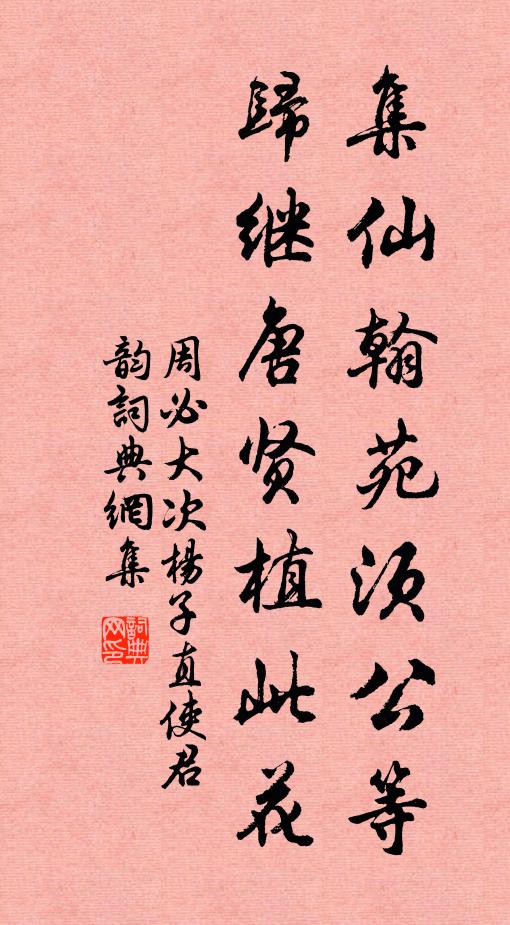 集仙翰苑须公等
歸继唐贤植此花
周必大次楊子直使君
韵詞典網集
詞典
网印